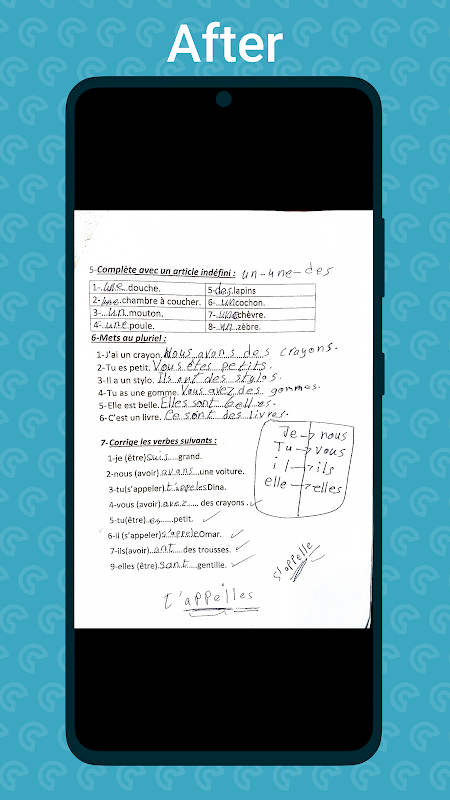 After
5-Complète avec un article indéfini : un-une-des
1-..une...douche. 5-des.lapins
2-une.chambre à coucher. 6-..un.cochon.
3-...un...mouton. 7-.une.chèvre.
4-.une.poule. 8-.un..zèbre.
6-Mets au pluriel :
1-J'ai un crayon. Nous avons des crayons.
2-Tu es petit. Vous êtes petits.
3-Il a un stylo. Ils ont des stylos.
4-Tu as une gomme. Vous avez des gommes.
5-Elle est belle. Elles sont belles.
6-C'est un livre. Ce sont des livres.
Je → nous
Tu → vous
il → ils
elle → elles
7-Corrige les verbes suivants :
1-je (être)suis....grand.
2-nous (avoir).avons...une voiture.
3-tu(s'appeler)t'appelesDina.
4-vous (avoir).avez..... des crayons .
5-tu(être)..es......petit.
6-il (s'appeler)s'appeleOmar.
7-ils(avoir)..ont....des trousses.
9-elles (être).sont.....gentille.
s'appelle
t'appelles